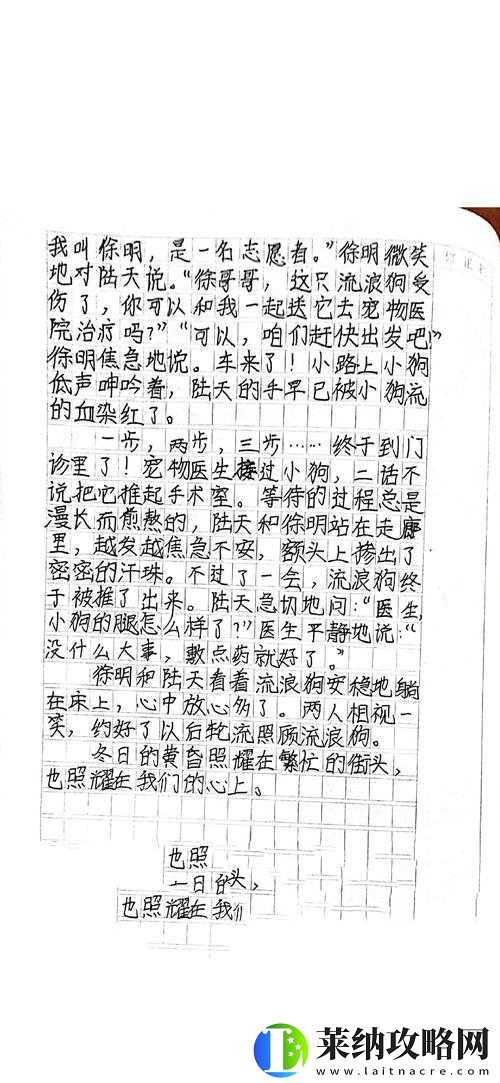 我叫徐明，是一名志愿者。”徐明微笑
地对陆天说。“徐哥哥，这只流浪狗受
伤了，你可以和我一起送它去宠物医
院治疗吗？”“可以，咱们赶快出发吧！”
徐明焦急地说。车来了！小路上小狗
低声呻吟着，陆天的手早已被小狗流
的血染红了。
一步，两步，三步……终于到门
诊里了！宠物医生接过小狗，二话不
说把它推起手术室。等待的过程总是
漫长而煎熬的，陆天和徐明站在走廊
里，越发越焦急不安，额头上掺出了
密密的汗珠。不过了一会，流浪狗终
于被推了出来。陆天急切地问：“医生，
小狗的腿怎么样了？”医生平静地说：“
没什么大事，敷点药就好了。”
徐明和陆天看着流浪狗安稳地躺
在床上，心中放心多了。两人相视一
笑，约好了以后轮流照顾流浪狗。
冬日的黄昏照耀在繁忙的街头，
也照耀在我们的心上。
也照
一日的头，
也照耀在我们
莱纳攻略网
www.laitnacre.com